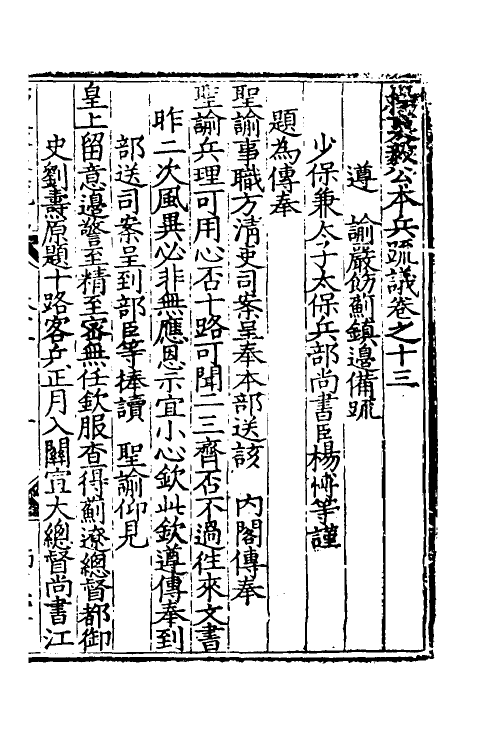 楊襄毅公本兵疏議卷之十三
遵　諭嚴飭薊鎮邊備疏
少保兼太子太保兵部尚書臣楊博等謹
題為傳奉
聖諭事職方清吏司案呈奉本部送該　內閣傳奉
聖諭兵理可用心否十路可聞二三齊否不過徃來文書
昨二次風異必非無應恩示宜小心欽此欽遵傳奉到
部送司案呈到部臣等捧讀　聖諭仰見
皇上留意邊警至精至密無任欽服查得薊遼總督都御
史劉燾原題十路客兵正月入關宣大總督尚書江